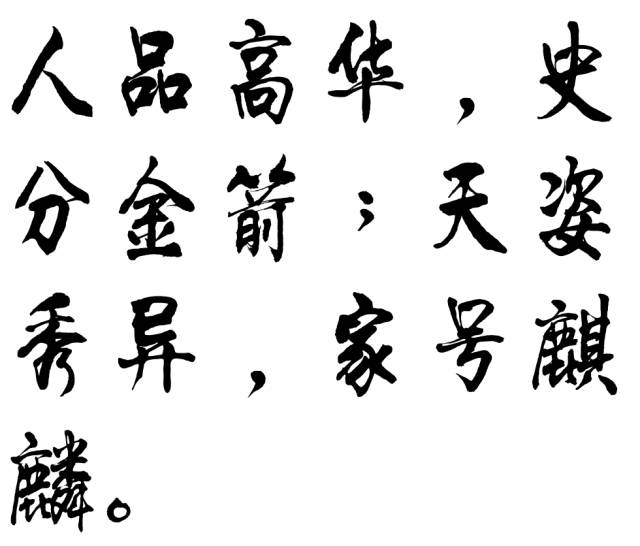 人品高华，史
分金箭；天姿
秀异，家号麒
麟。